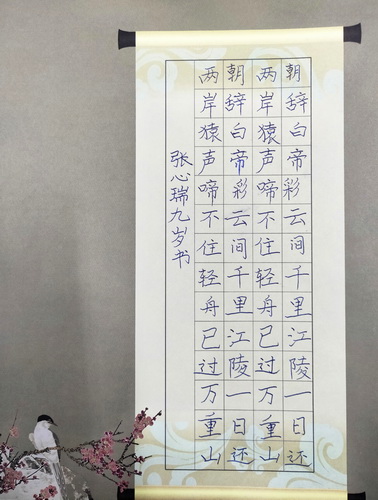 朝辞白帝彩云间千里江陵一日还
两岸猿声啼不住轻舟已过万重山
朝辞白帝彩云间千里江陵一日还
两岸猿声啼不住轻舟已过万重山
张心瑞九岁书